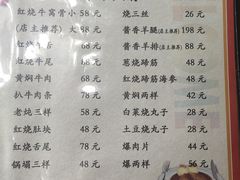 红烧牛窝骨小 58 元
(店主推荐) 大 88 元
红烧牛舌 58 元
红烧牛尾 58 元
黄焖牛肉 58 元
扒牛肉条 78 元
老炖三样 58 元
红烧肚块 48 元
红烧舌尾 78 元
锅塌三样 48 元
烧三丝 26 元
酱香羊腿(店主推荐) 198 元
酱香羊排(店主推荐) 88 元
葱烧蹄筋 48 元
红烧蹄筋海参 48 元
黄焖两样 42 元
白菜烧九子 28 元
土豆烧九子 28 元
爆肉片 44 元
爆两样 56 元